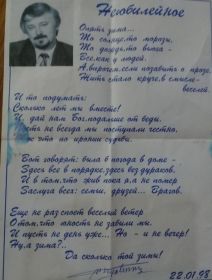 Неюбилейное
Опять зима...
То солнце, то морозы,
То дождь, то вьюга -
Все, как у людей.
А впрочем, если позабыть о прозе,
Жить стало круче, в смысле -
веселей.
И то подумать:
Сколько лет мы вместе!
И, дай нам Бог, подалше от беды.
Пусть не всегда мы поступали честно,
Но это по иронии судьбы.
Вот говорят: была б погода в доме -
Здесь все в порядке, здесь без дураков,
И в том, что жив пока я, а не помер
Заслуга всех: семьи, друзей... Врагов.
Еще не раз споет веселый ветер
О том, что юность не забыли мы.
И пусть не день уже... Но - и не вечер!
Ну, а зима?..
Да сколько той зимы!
22.01.98